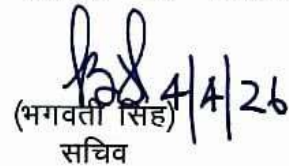 4/4/26
(भगवती सिंह)
सचिव